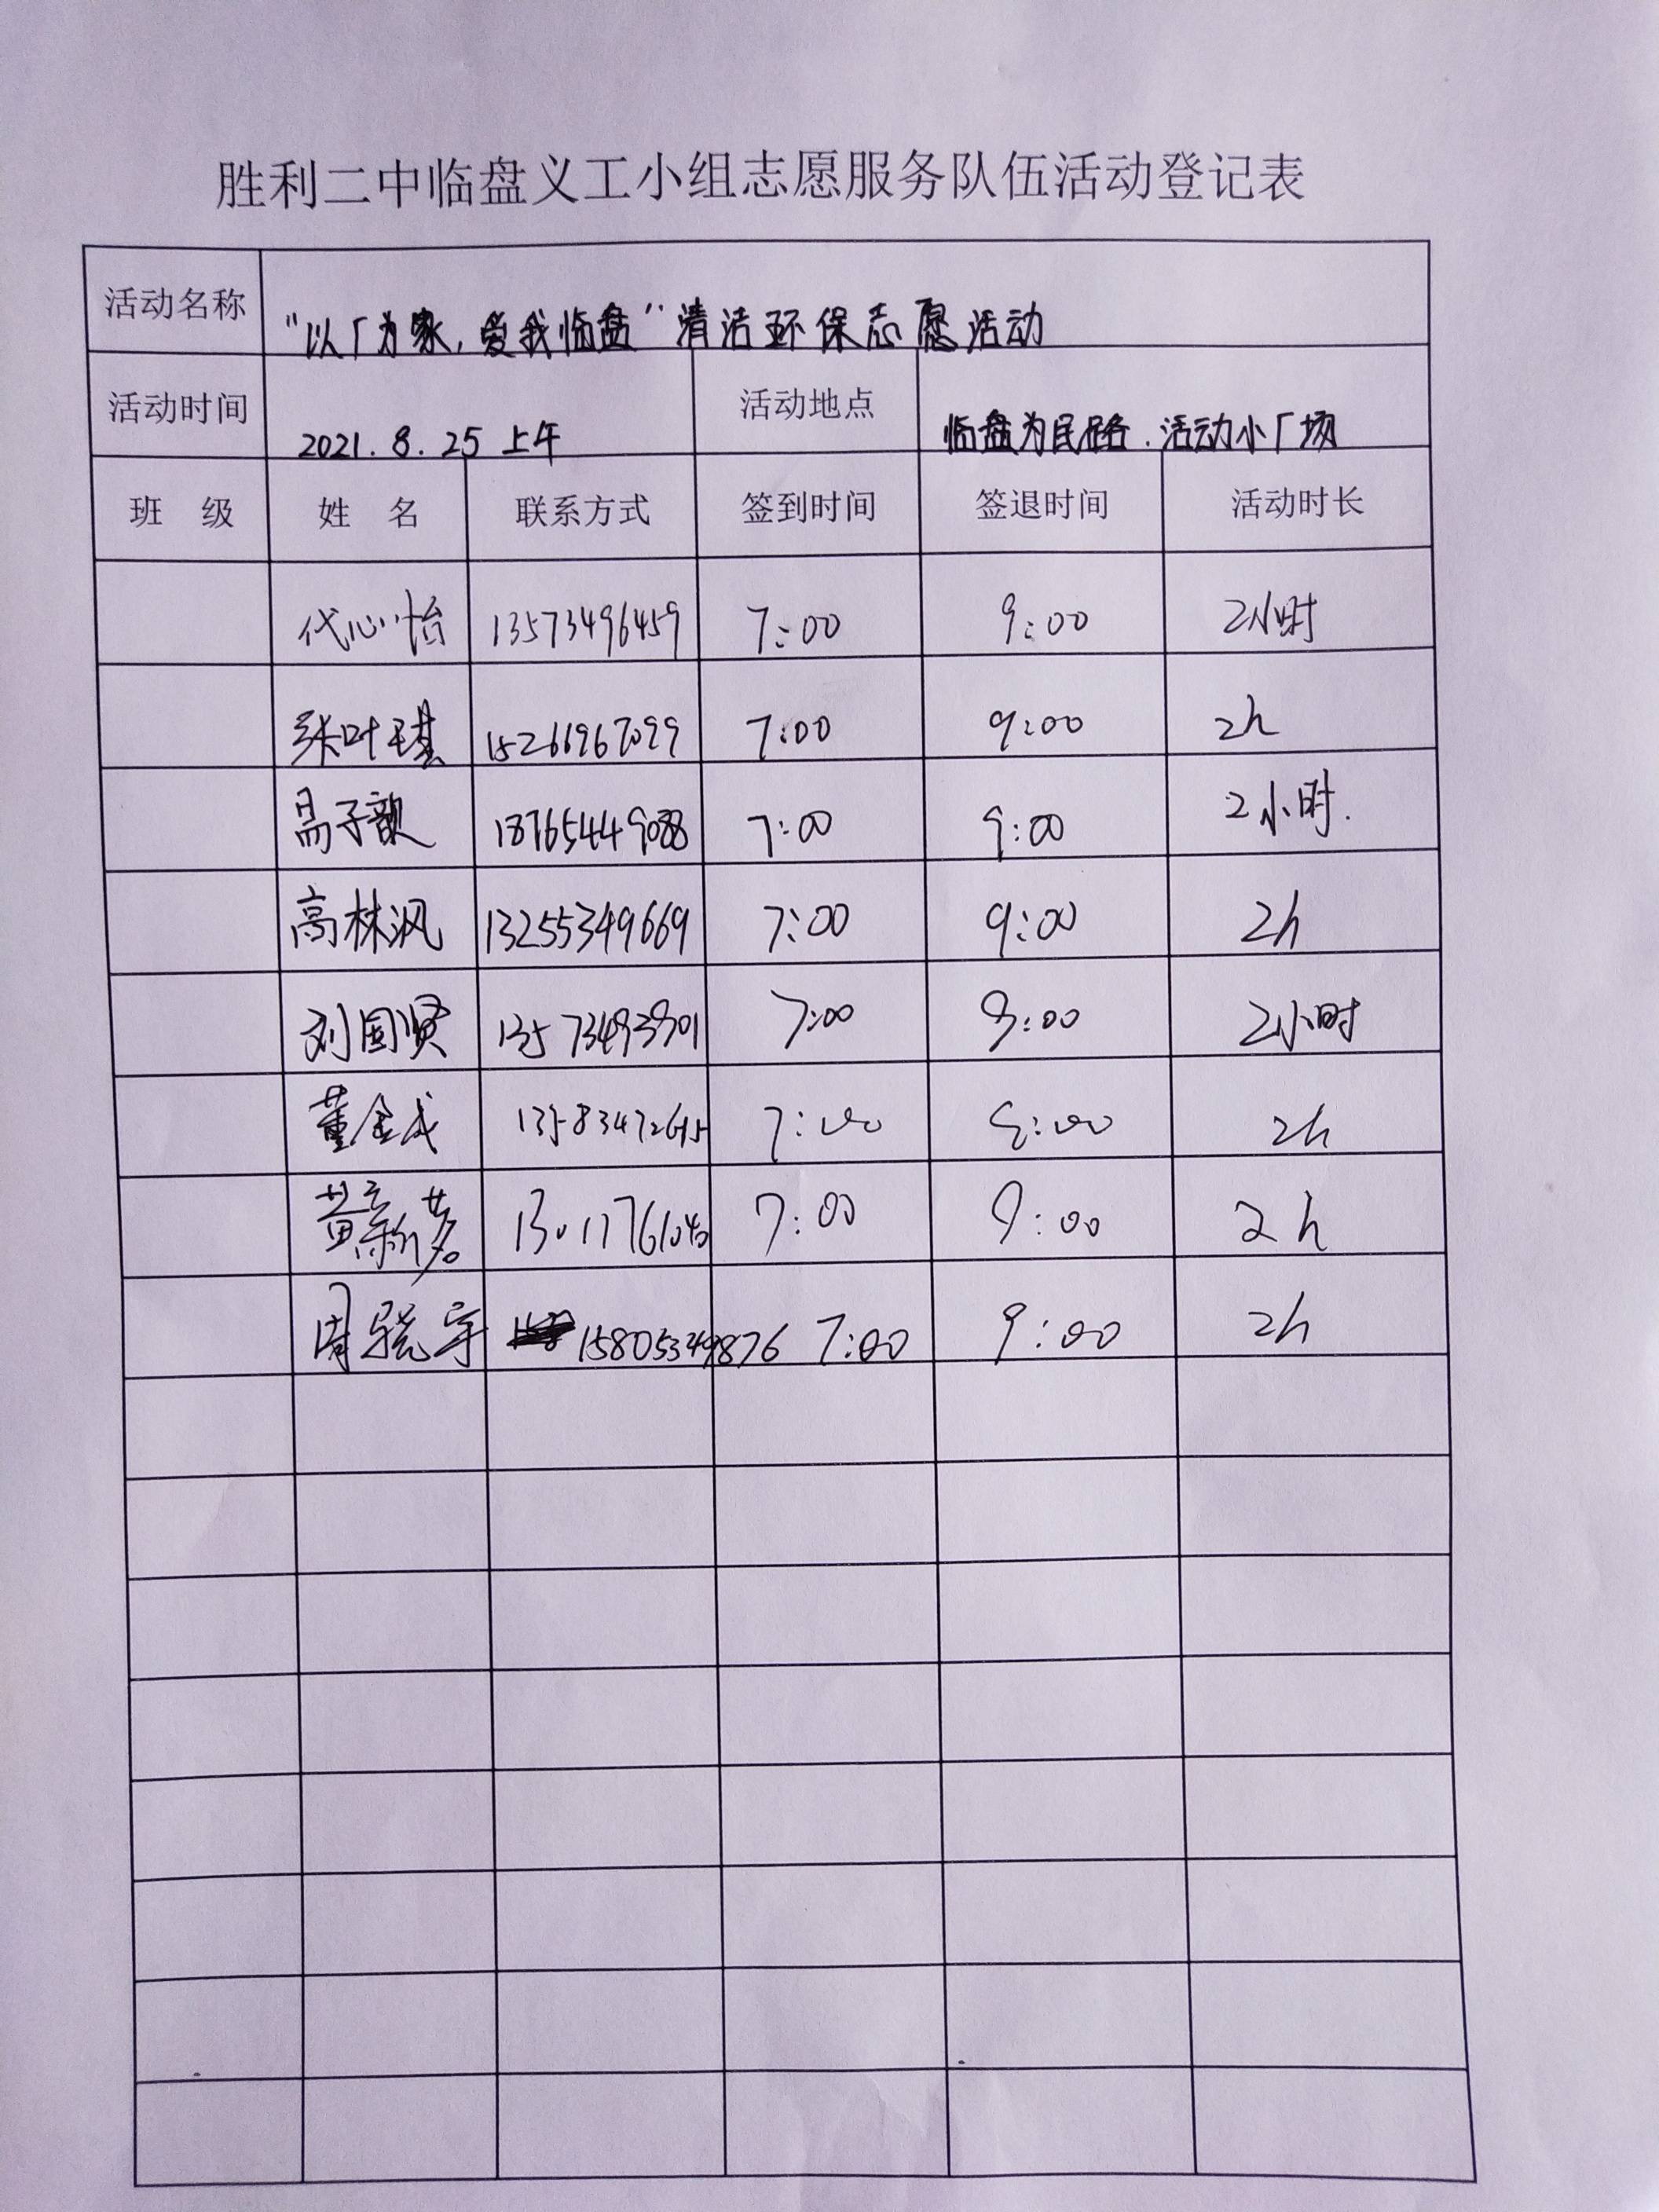 胜利二中临盘义工小组志愿服务队伍活动登记表
活动名称 “以厂为家,爱我临盘”清洁环保志愿活动
活动时间 2021.8.25 上午 活动地点 临盘为民路.活动小广场
班 级 姓 名 联系方式 签到时间 签退时间 活动时长
代心怡 13573496459 7:00 9:00 2小时
张叶琪 15266967099 7:00 9:00 2h
昺子歆 18765449088 7:00 9:00 2小时.
高林沨 13255349669 7:00 9:00 2h
刘国贤 13573493901 7:00 9:00 2小时
董金成 7:00 9:00 2h
黄新茗 7:00 9:00 2h
周骁宇 15805349876 7:00 9:00 2h